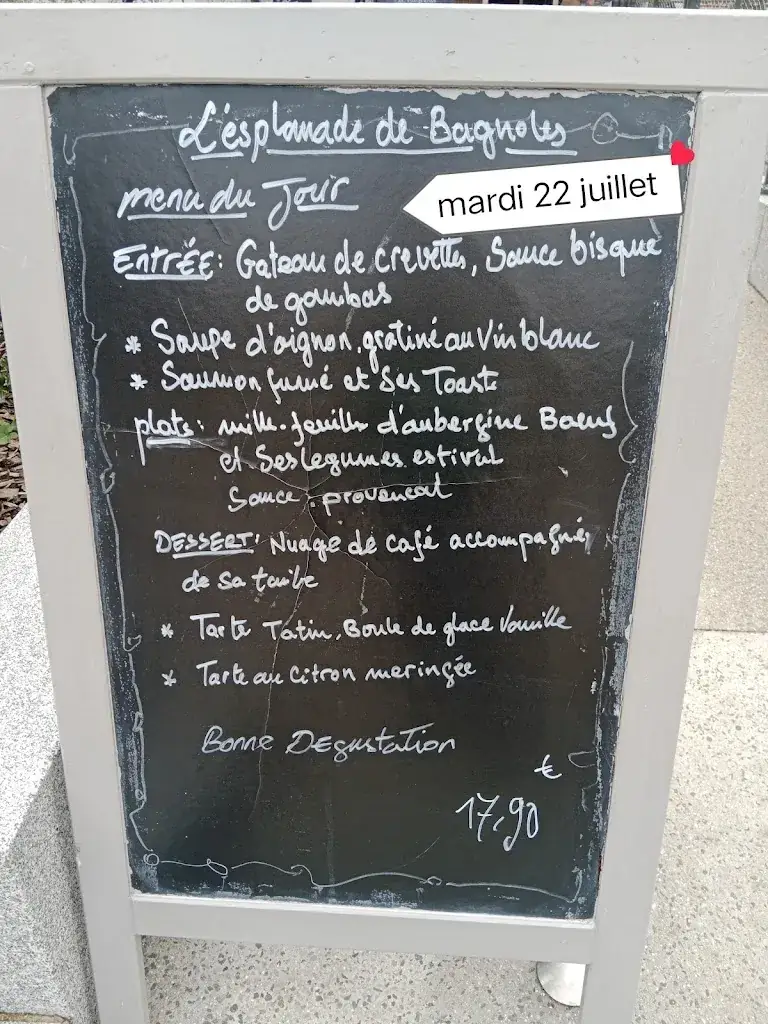 L'esplanade de Bagnoles
menu du Jour
mardi 22 juillet
ENTRÉE: Gateau de crevettes, Sauce bisque
de gambas
* Soupe d'oignon, gratiné au Vin blanc
* Saumon fumé et Ses Toast
plats: mille-feuille d'aubergine Bœuf
et Ses legumes estival
Sauce: provencal
DESSERT: Nuage de café accompagné
de sa
* Tarte Tatin, Boule de glace Vanille
* Tarte au Citron meringée
Bonne DEgustation
€
17,90